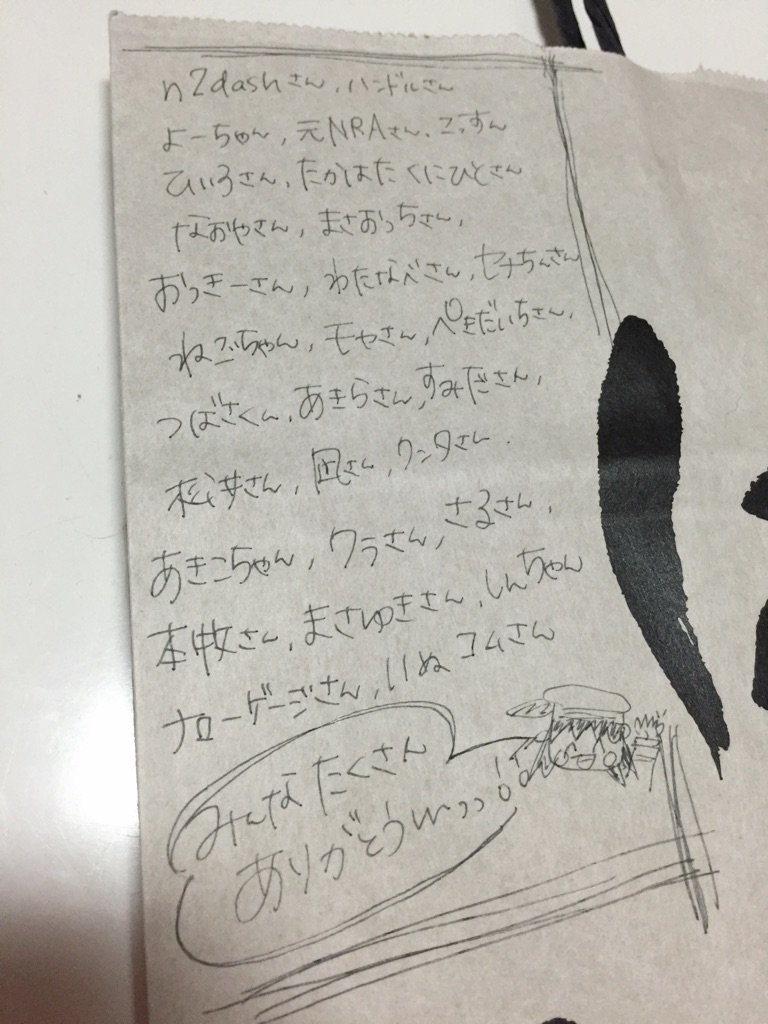 n2dashさん、ハンドルさん
よーちゅん、元NRAさん、ごっすん
ひいろさん、たかはたくにひとさん
なおやさん、まさおっちさん、
おっきーさん、わたなべさん、セナちんさん
ねごちゃん、モヤさん、ぺきだいちさん、
つばさくん、あきらさん、すみださん、
松井さん、凪さん、クンタさん、
あきこちゃん、クラさん、さるさん、
本牧さん、まさゆきさん、しんちゃん
ナローゲージさん、いぬコムさん
みんなたくさん
ありがとうwっっ!!